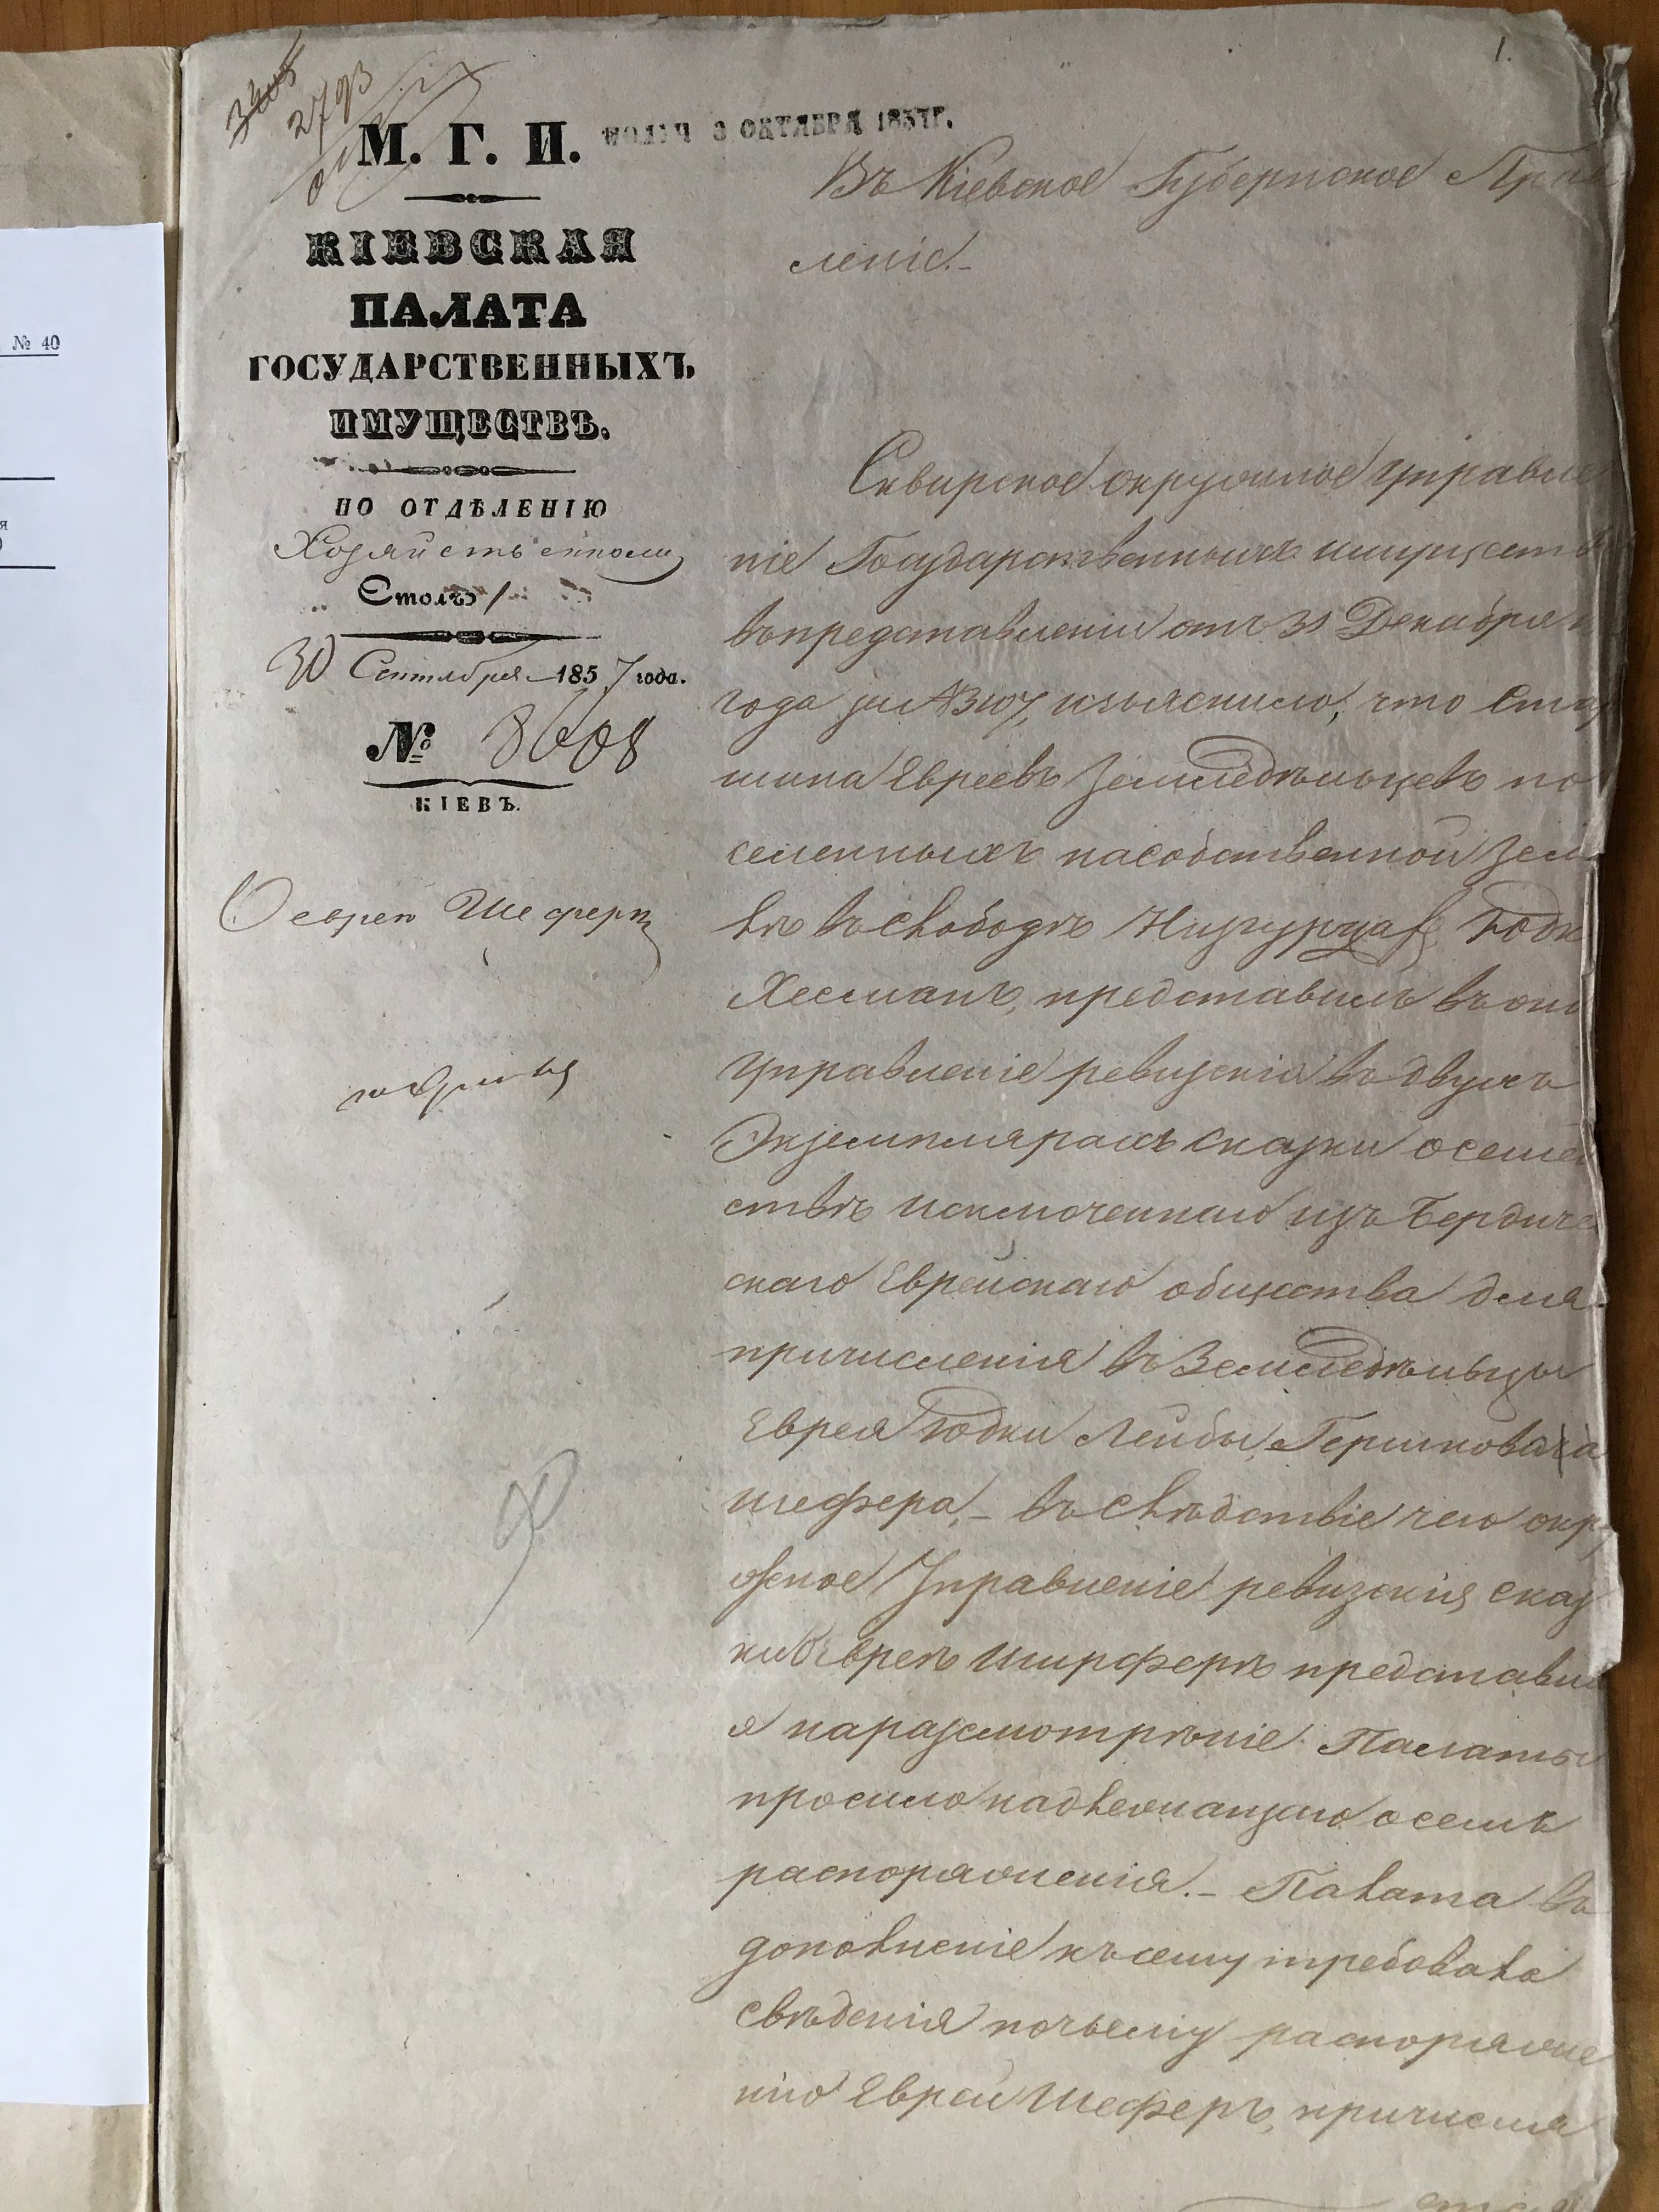 1.
2793
М. Г. И.
ПОЛУЧ 3 ОКТЯБРЯ 1857Г.
КІЕВСКАЯ
ПАЛАТА
ГОСУДАРСТВЕННЫХЪ
ИМУЩЕСТВЪ.
ПО ОТДѢЛЕНІЮ
Хозяйственному
Столъ 1
30 Сентября 1857 года.
№ 8608
КІЕВЪ.
О евреѣ Шеферѣ
Въ Кіевское Губернское Прав
леніе.-
Сквирское окружное управле
ніе Государственныхъ имуществ
въ представленіи отъ 31 Декабря
года за № 3107, изъяснило, что Стар
шина Евреевъ Земледѣльцевъ по
селенныхъ на собственной зем
лѣ въ слободѣ Юдк
Хесманъ, представилъ въ оно
управленіе ревизскія въ двухъ
Экземплярахъ сказки о семей
ствѣ исключеннаго изъ Бердиче
скаго Еврейскаго общества для
причисленія въ Земледѣльцы
Еврея Юдки Лейбы Гершковича
шефера,- въ слѣдствіе чего окру
жное Управленіе ревизскія сказ
ки о Евреѣ Шеферѣ представля
я на разсмотрѣніе Палаты
просило надлежащаго о семъ
распоряженія.- Палата въ
дополненіе къ сему требовала
свѣденія по чьему распоряже
нію Еврей Шеферъ, причисля
№ 40
я